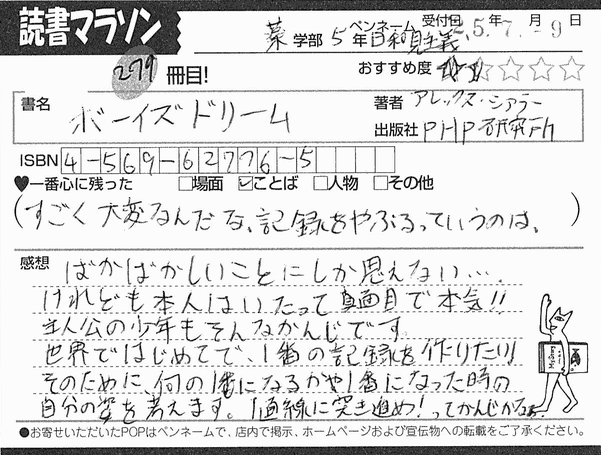 読書マラソン
薬 学部 5 年 ペンネーム 日和見主義 受付日 5年 7月 9日
279 冊目! おすすめ度 ★☆☆☆☆
書名 ボーイズ ドリーム 著者 アレックス・シアラー
出版社 PHP研究所
ISBN 4-569-62776-5
♥一番心に残った □場面 ☑ことば □人物 □その他
(すごく大変なんだな、記録をやぶるっていうのは。)
感想 ばかばかしいことにしか思えない…。
けれども本人はいたって真面目で本気!!
主人公の少年もそんなかんじです。
世界ではじめてで、1番の記録を作りたい!
そのために、何の1番になるかや1番になった時の
自分の姿を考えます。1直線に突き進め!ってかんじかなぁ
●お寄せいただいたPOPはペンネームで、店内で掲示、ホームページおよび宣伝物への転載をご了承ください。